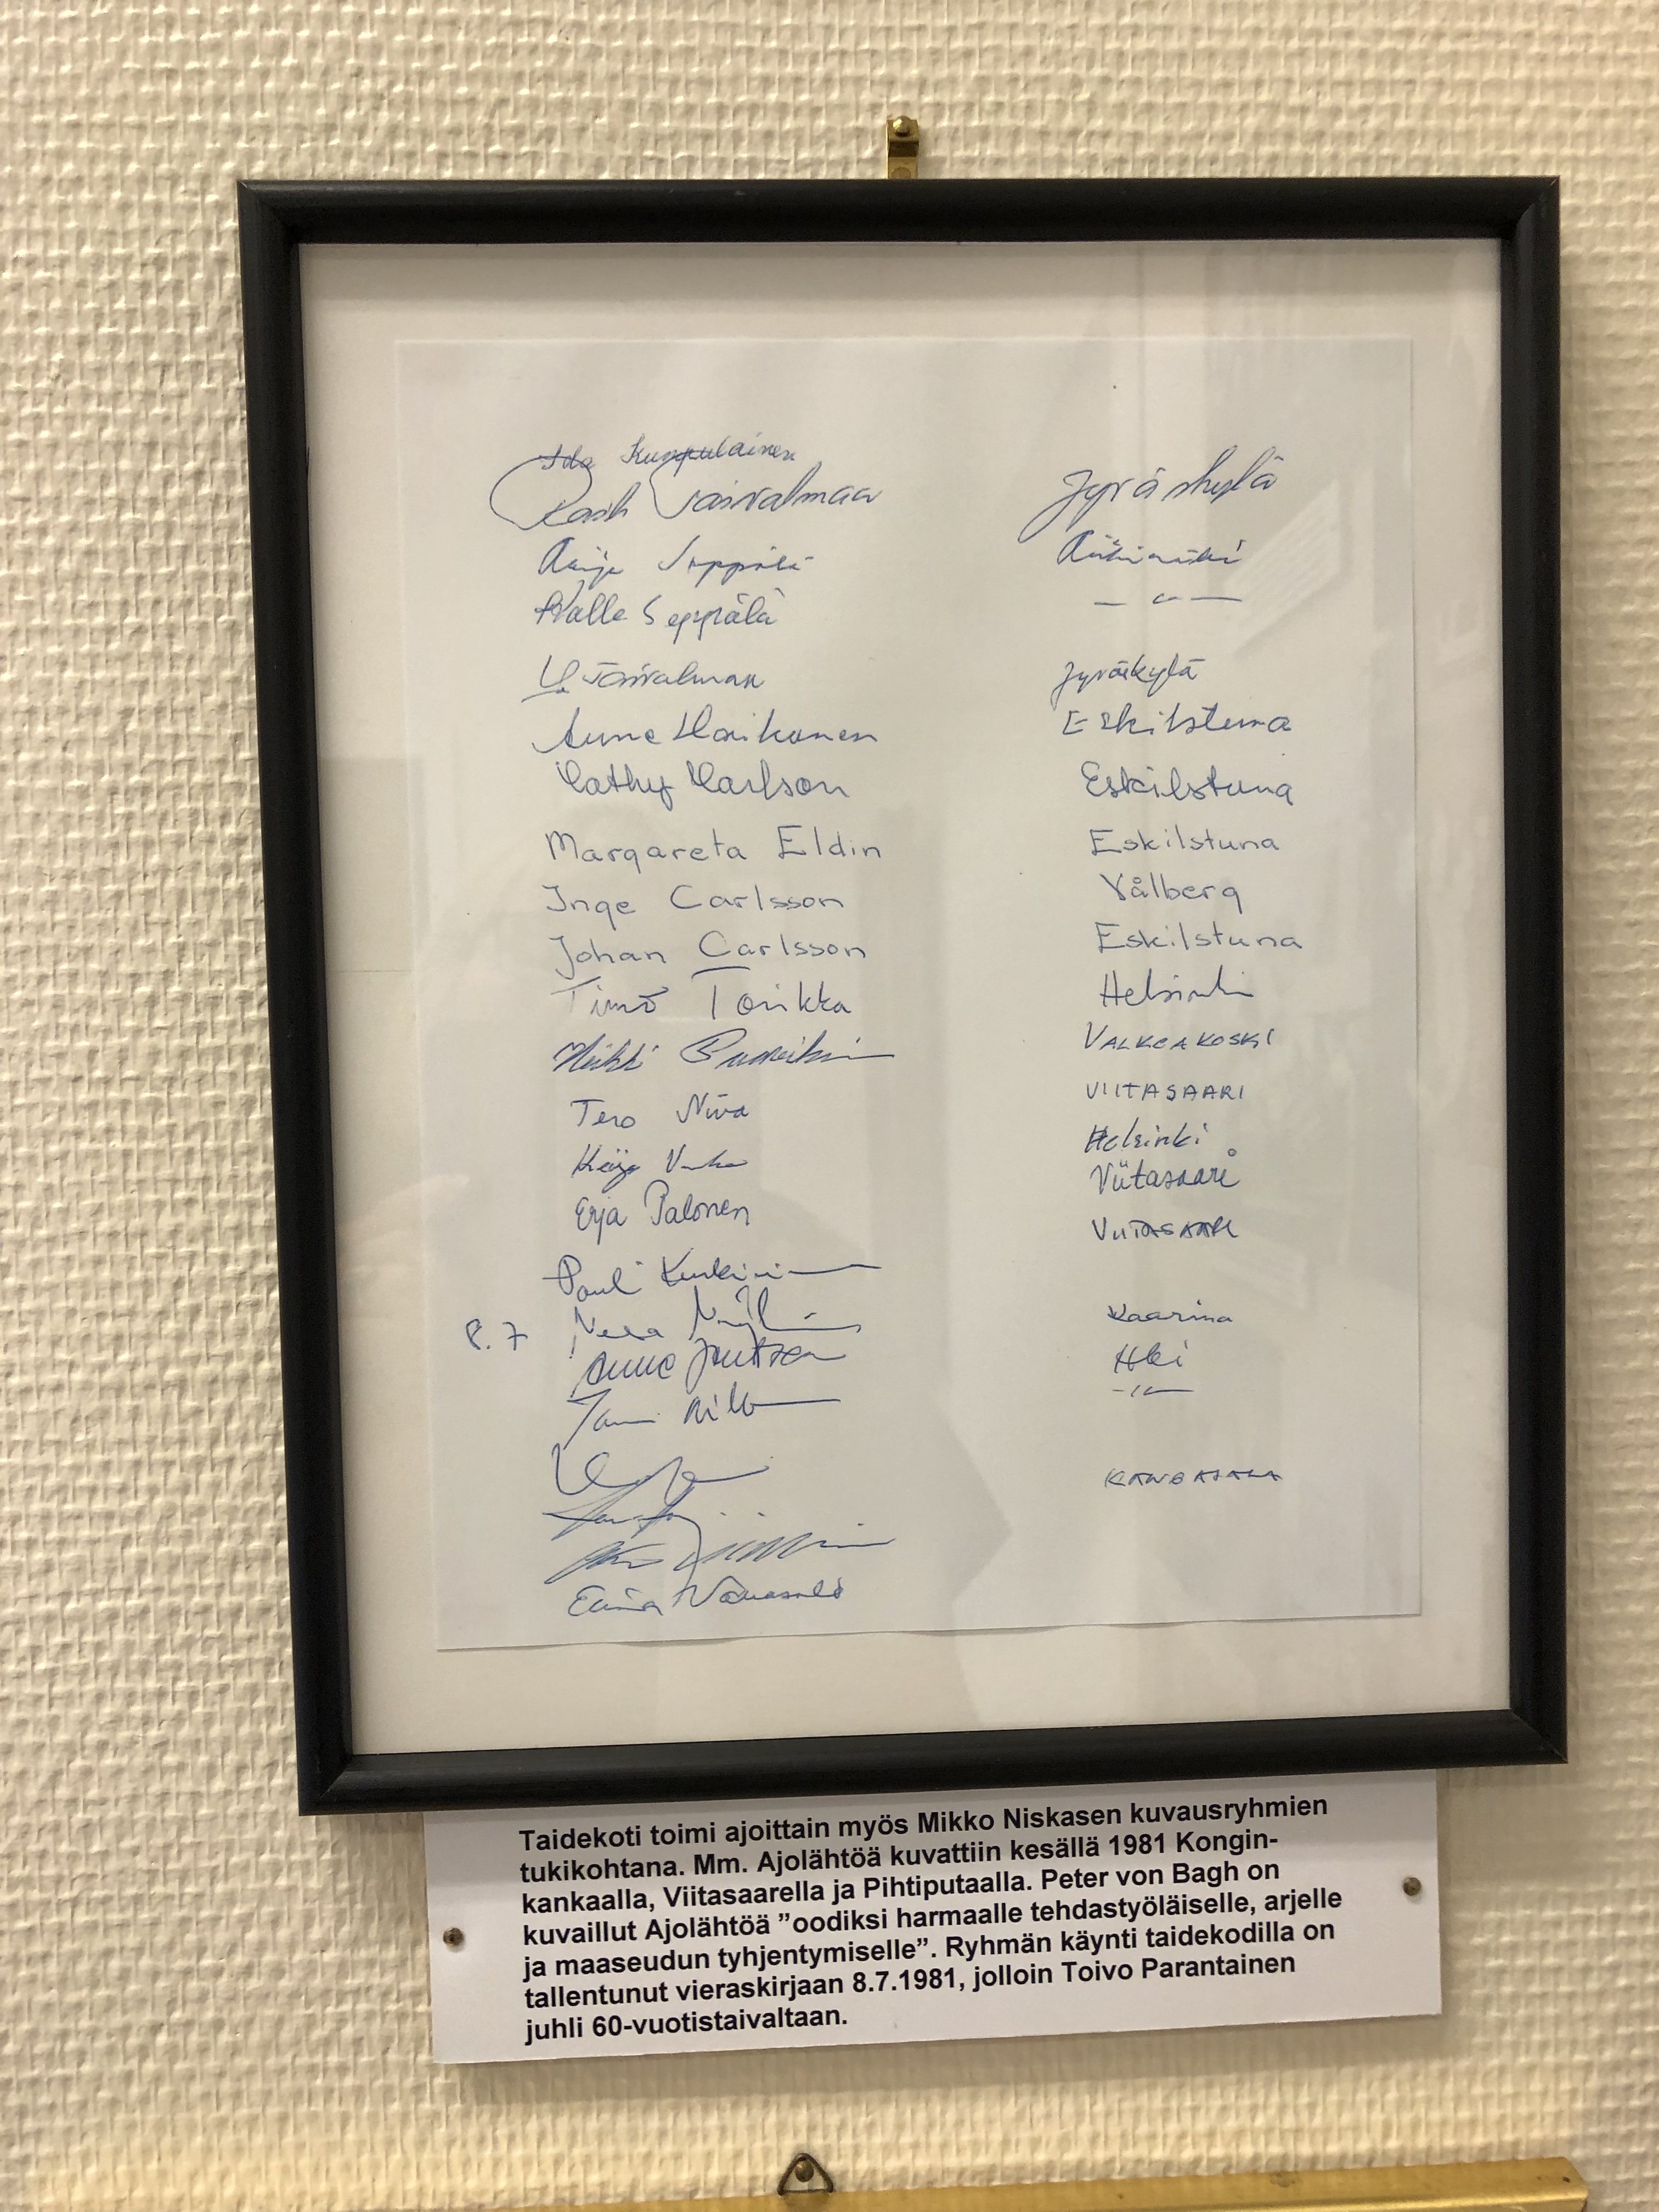 Ida Kumpulainen
Toivalmaa Jyväskylä
Raija Seppälä Riihimäki
Kalle Seppälä — " —
U. Toivalmaa Jyväskylä
Eskilstuna
Cathy Carlson Eskilstuna
Margareta Eldin Eskilstuna
Inge Carlsson Vålberg
Johan Carlsson Eskilstuna
Timo Torikka Helsinki
Heikki VALKEAKOSKI
Tero Niva VIITASAARI
Keijo Helsinki
Erja Palonen Viitasaari
Pauli VIITASAARI
8.7 Vesa Kaarina
Anne Hki
- " -
KANGASALA
Taidekoti toimi ajoittain myös Mikko Niskasen kuvausryhmien
tukikohtana. Mm. Ajolähtöä kuvattiin kesällä 1981 Kongin-
kankaalla, Viitasaarella ja Pihtiputaalla. Peter von Bagh on
kuvaillut Ajolähtöä ”oodiksi harmaalle tehdastyöläiselle, arjelle
ja maaseudun tyhjentymiselle”. Ryhmän käynti taidekodilla on
tallentunut vieraskirjaan 8.7.1981, jolloin Toivo Parantainen
juhli 60-vuotistaivaltaan.